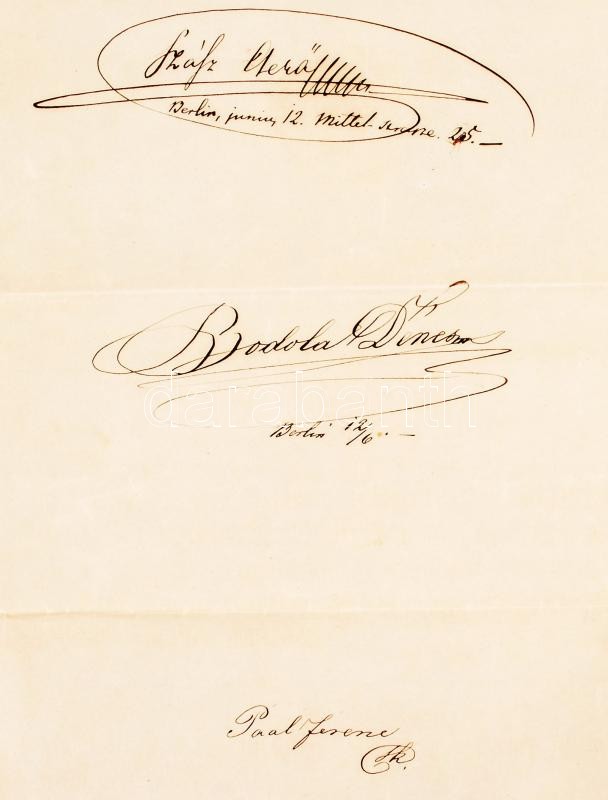 Szász Gerő
Berlin, junius 12. Mittel strasse. 25. —
Bodola Dénes
darabanth
Berlin 12/6. —
Paal Ferenc
sk.